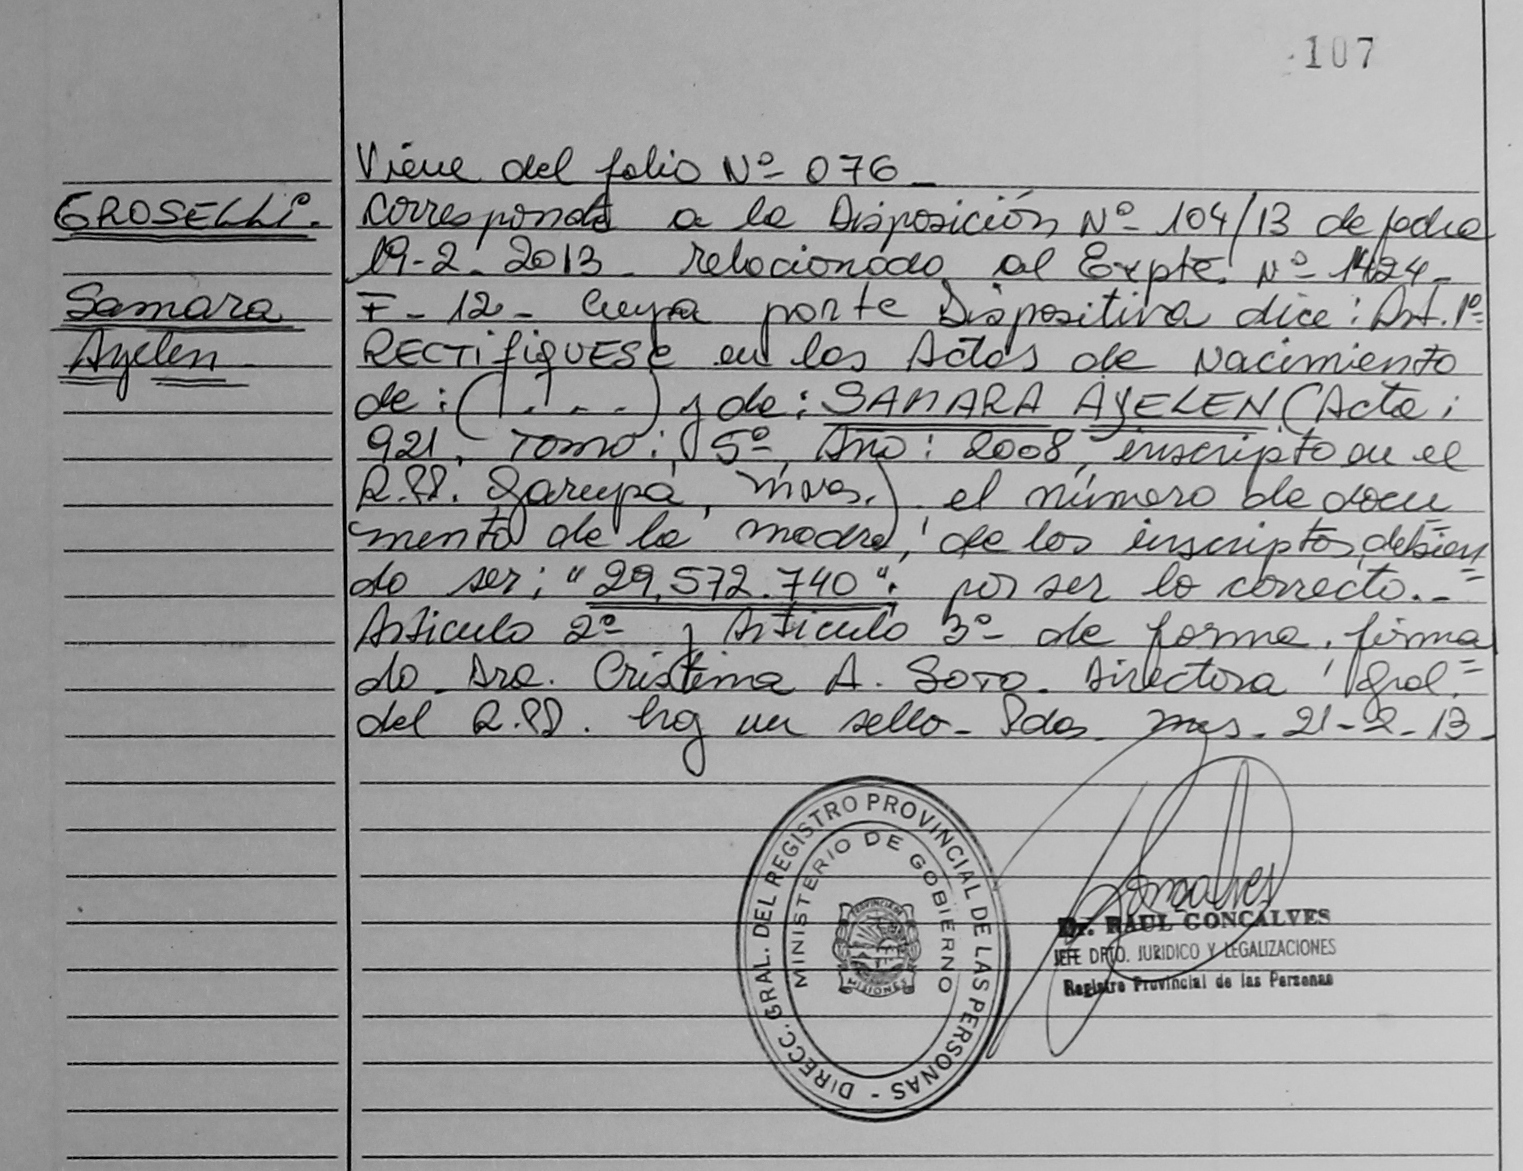 107
Viene del folio Nº 076_
GROSELLI.
Corresponde a la Disposición Nº 104/13 de fecha
19-2-2013- relacionado al Expte. Nº 1424-
Samara
F-12- Cuya parte Dispositiva dice: Art. 1º
Ayelen
RECTifiQUESE en las Actas de Nacimiento
de: (....) y de: SAMARA AYELEN (Acta:
921, Tomo: 5º, Año: 2008, inscripto en el
R.PP. Garupá, Mnes.) el número de docu
mento de la madre, de los inscriptos, debien
do ser: "29.572.740": por ser lo correcto.-
Articulo 2º y Articulo 3º de forma. firma
do Dra. Cristina A. Soto. Directora Gral.
del R.PP. hay un sello- Pdas. Mnes. 21-2-13.
DIRECC. GRAL. DEL REGISTRO PROVINCIAL DE LAS PERSONAS -
MINISTERIO DE GOBIERNO
PROVINCIA DE
MISIONES
Goncalves
Dr. RAUL GONCALVES
JEFE DPTO. JURIDICO Y LEGALIZACIONES
Registro Provincial de las Personas